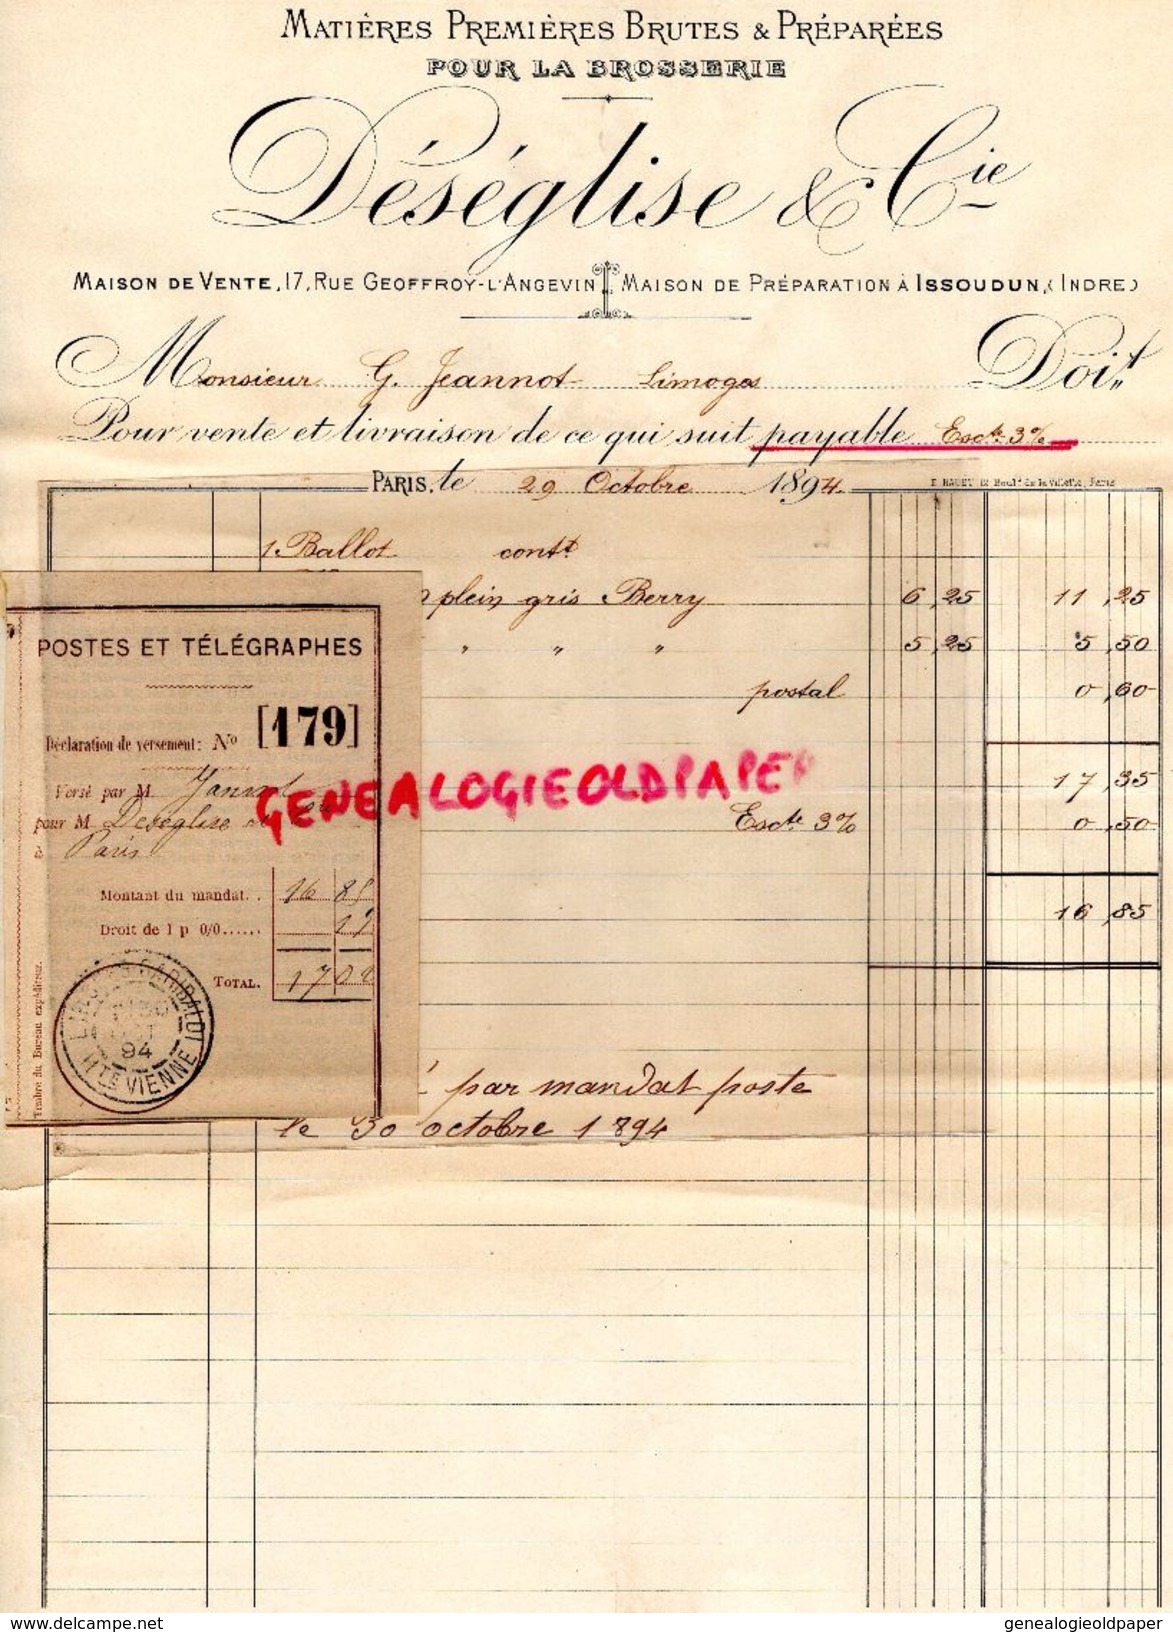 MATIÈRES PREMIÈRES BRUTES & PRÉPARÉES
POUR LA BROSSERIE
Déséglise & Cie
MAISON DE VENTE, 17, RUE GEOFFROY-L'ANGEVIN MAISON DE PRÉPARATION À ISSOUDUN, (INDRE)
Monsieur G. Jeannot Limoges Doit
Pour vente et livraison de ce qui suit payable Escte 3%
PARIS, le 29 Octobre 1894.
E. HAUET Bould de la Villette, Paris
1 Ballot contt
plein gris Berry 6,25 11,25
" " " 5,25 5,50
postal 0,60
17,35
Escte 3% 0,50
16,85
par mandat poste
le 30 octobre 1894
POSTES ET TÉLÉGRAPHES
Déclaration de versement: No [179]
Versé par M. Jannot
pour M Deséglise et Cie
à Paris
Montant du mandat.. 16 85
Droit de 1 p 0/0...... 17
TOTAL. 17 02
Timbre du Bureau expéditeur.
LIMOGES GARIBALDI
94
HTE VIENNE
GENEALOGIEOLDPAPER
delcampe.net
genealogieoldpaper